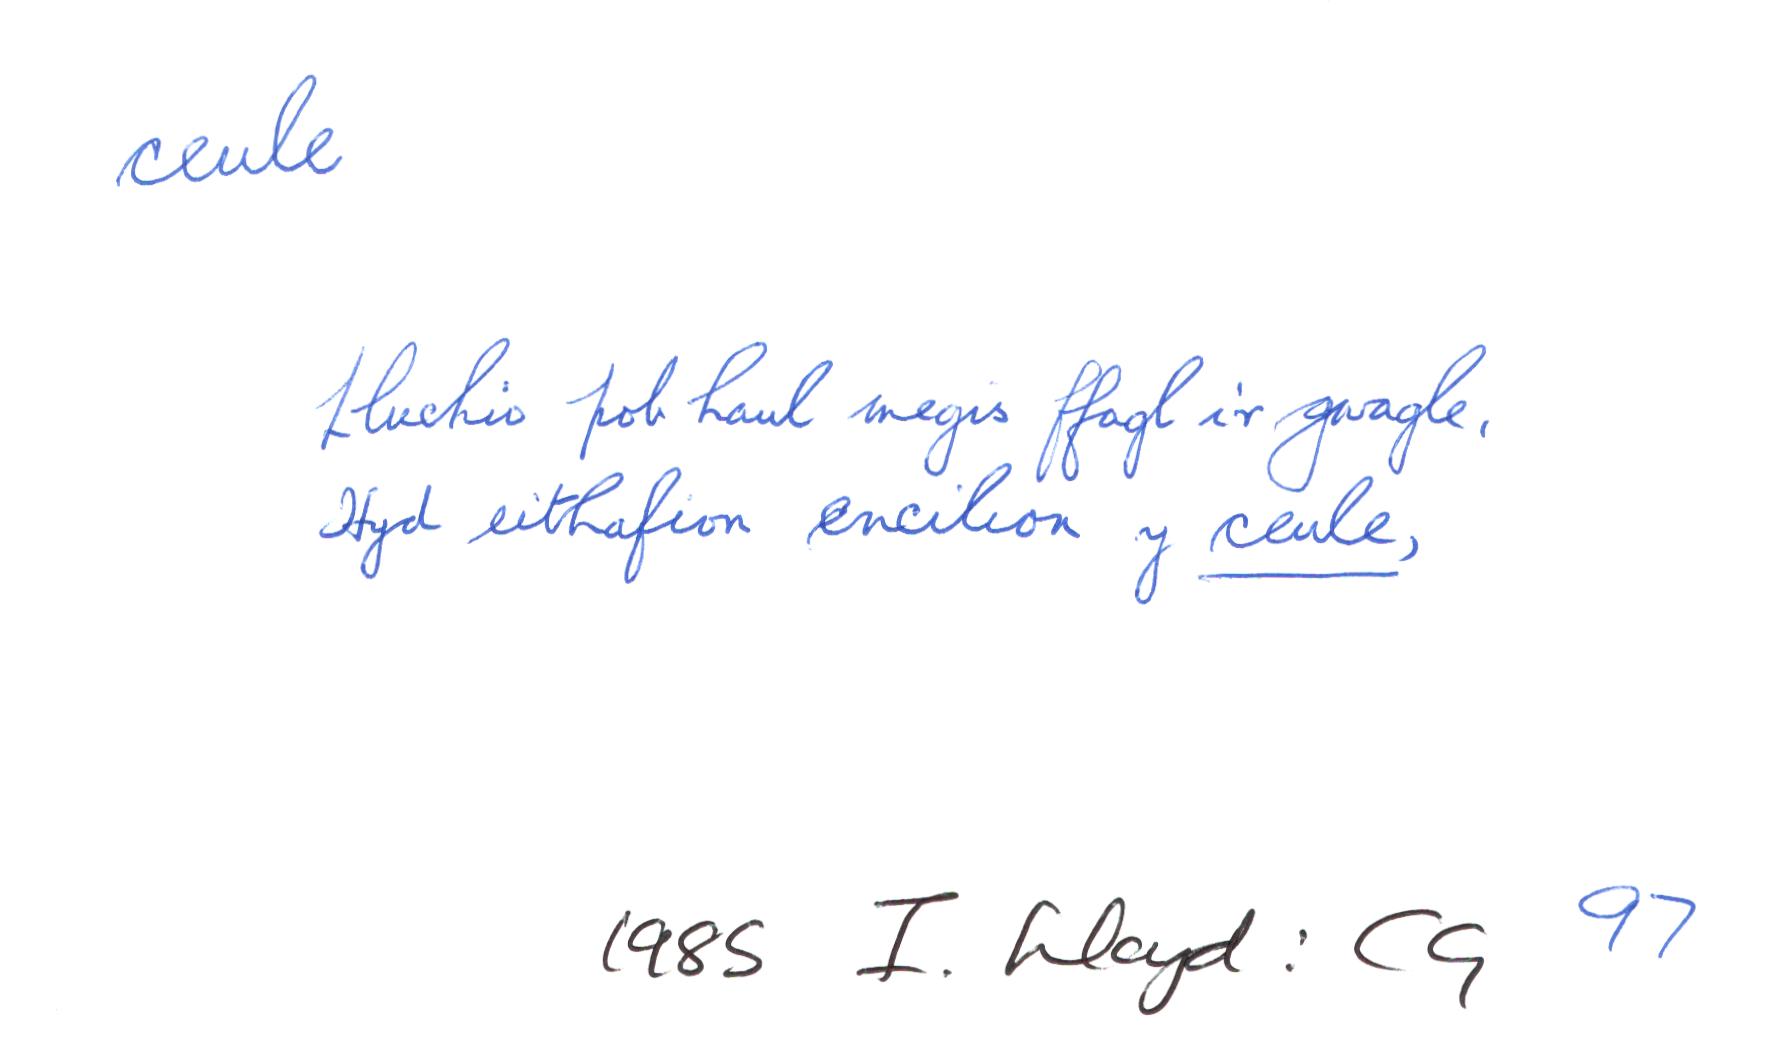 ceule
Lluchio pob haul megis ffagl i'r gwagle,
Hyd eithafion encilion y ceule,
1985 I. Llwyd: CG 97